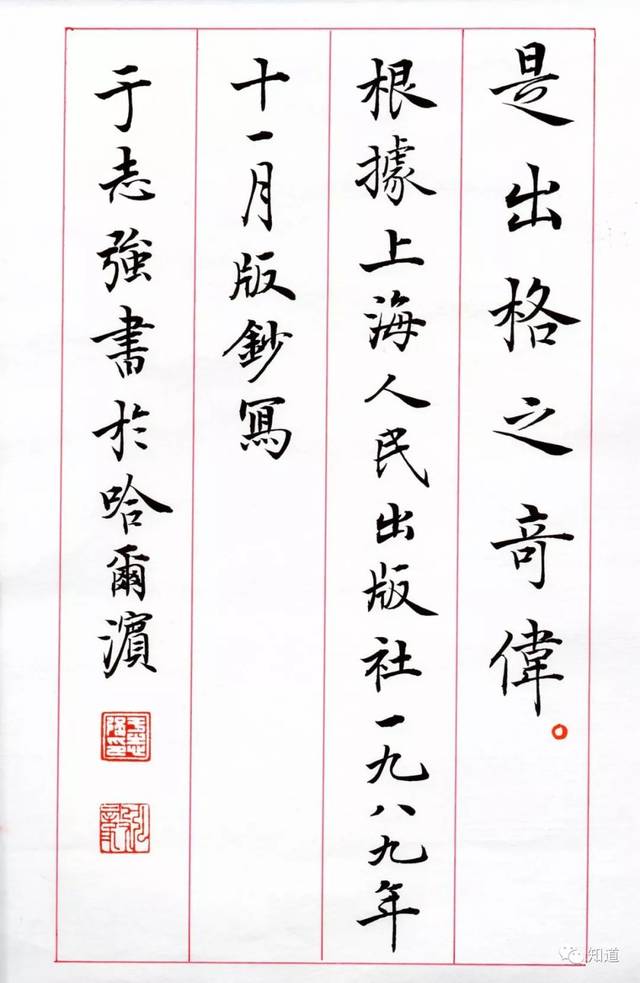 是出格之奇偉。
根據上海人民出版社一九八九年
十一月版鈔寫
于志強書於哈爾濱
知道